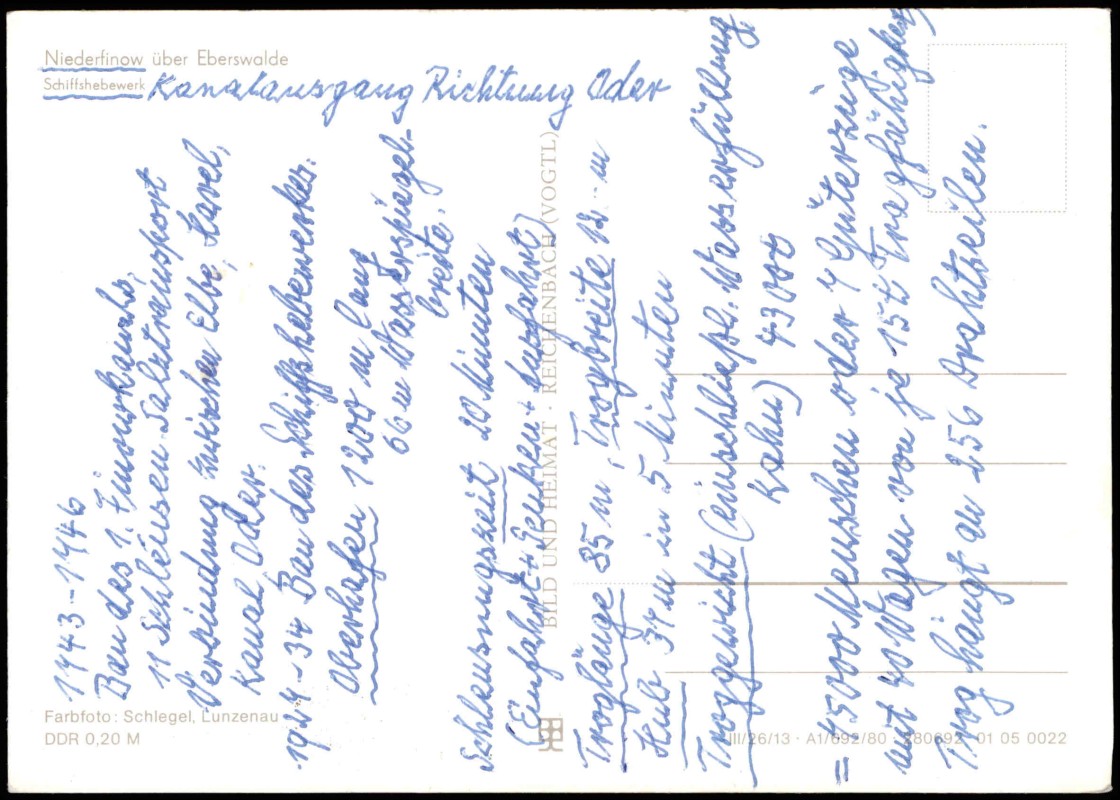 Niederfinow über Eberswalde
Schiffshebewerk Kanalausgang Richtung Oder
1743 - 1746
Bau des 1. Finowkanals,
11 Schleusen. Salztransport
Verbindung zwischen Elbe, Havel,
Kanal Oder.
1924 - 34 Bau des Schiffshebewerkes.
Oberhafen 1200 m lang
66 m Wasserspiegel-
breite.
Schleusungszeit 20 Minuten
(Einfahrt + Senken + Ausfahrt)
BILD UND HEIMAT · REICHENBACH (VOGTL)
Troglänge 85 m, Trogbreite 12 m
Hub 37 m in 5 Minuten
Troggewicht (einschließl. Wasserfüllung
Kahn) 4300 t
= 45000 Menschen oder 7 Güterzüge
mit 40 Wagen von je 15 t Tragfähigkeit
Trog hängt an 256 Drahtseilen.
Farbfoto: Schlegel, Lunzenau
DDR 0,20 M
III/26/13 · A1/692/80 · 280692 · 01 05 0022